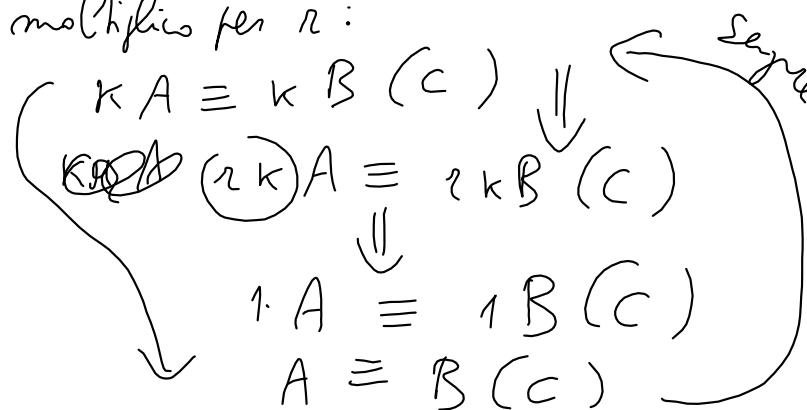 moltiplico per r :
kA ≡ kB (C) ⇓
(rk)A ≡ rkB (C)
⇓
1·A ≡ 1B (C)
A ≡ B (C)